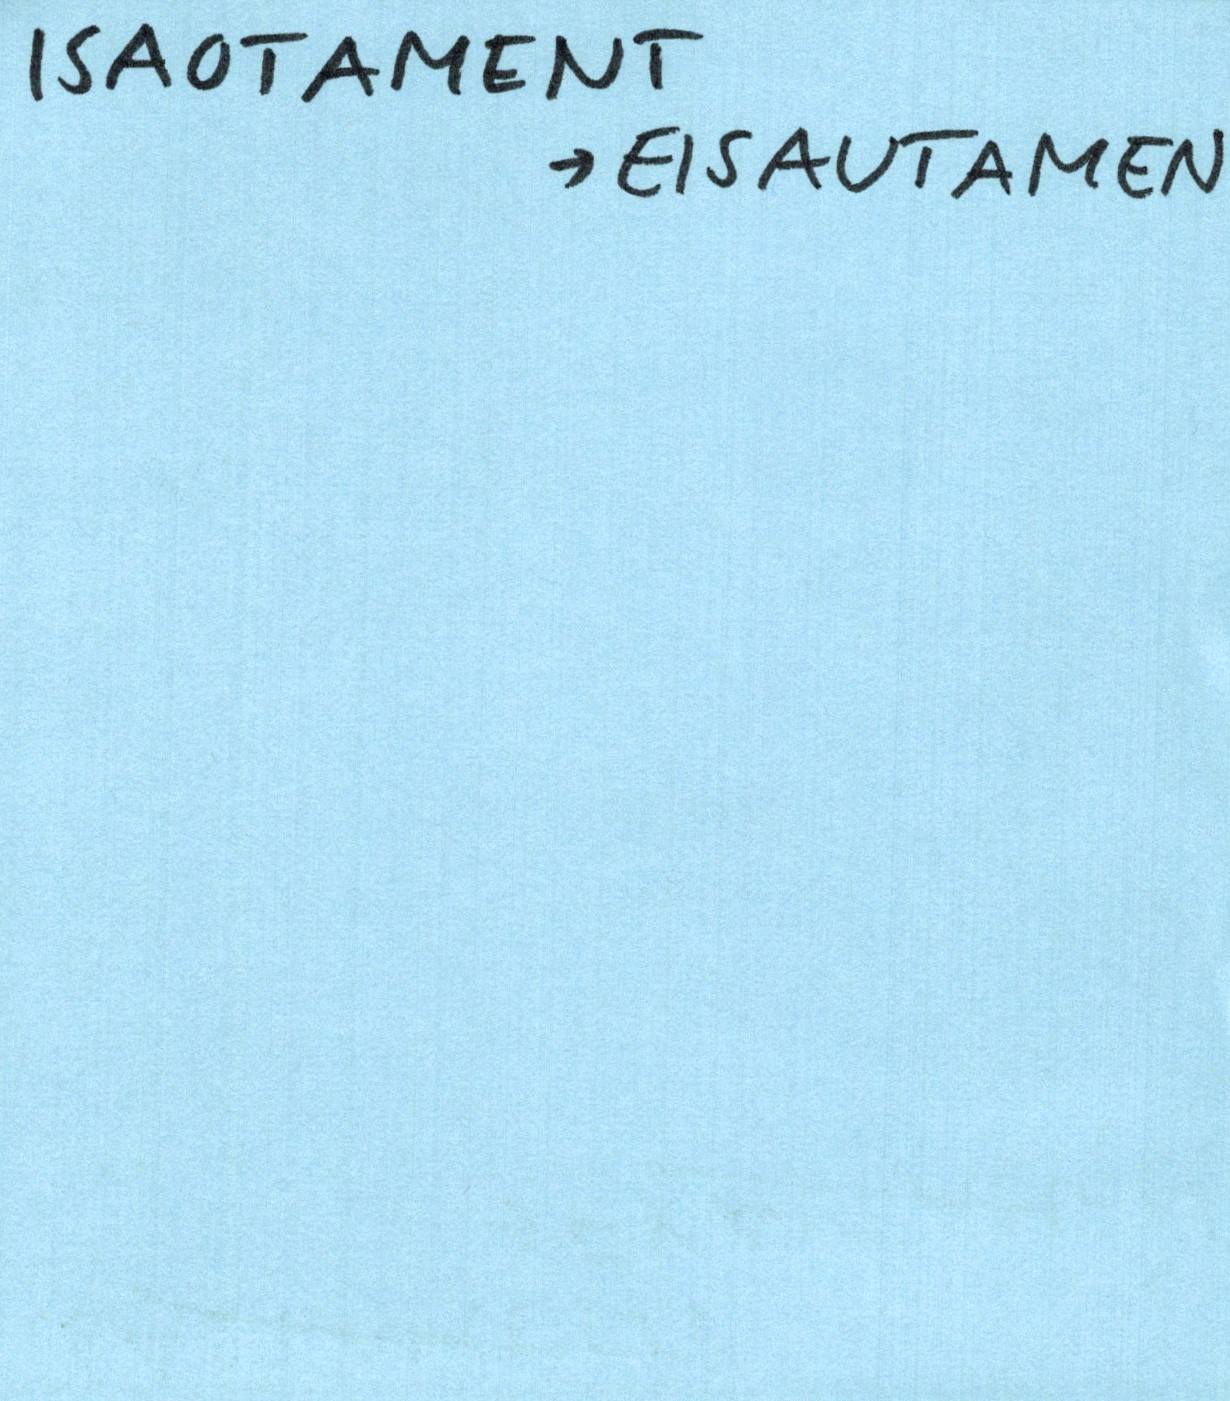 ISAOTAMENT
→ EISAUTAMEN